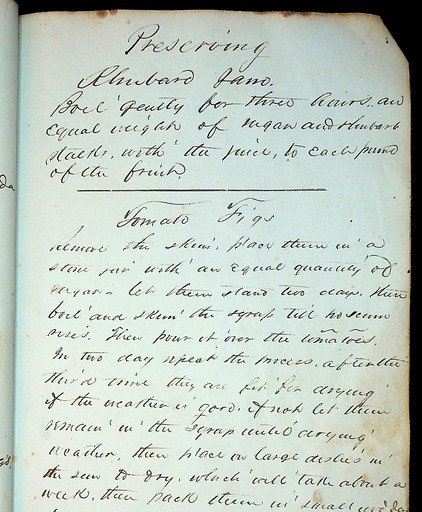 Preserving
Rhubard Jam.
Boil gently for three hours. an
equal weight of sugar and rhubarb
stalks, with the juice, to each pound
of the fruit.
Tomato Figs
Remove the skins. place them in a
stone jar with an equal quantity of
sugar. let them stand two days, then
boil and skim the syrup till no scum
rises. Then pour it over the tomatoes.
In two day repeat the process. after the
third time they are fit for drying
if the weather is good. if not let them
remain in the syrup until drying
weather, then place on large dishes in
the sun to dry. which will take about a
week, then pack them in small